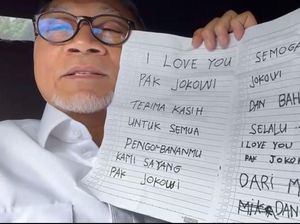 I LOVE YOU
PAK JOKOWI
TERIMA KASIH
UNTUK SEMUA
PENGORBANANMU
KAMI SAYANG
PAK JOKOWI
SEMOGA
JOKOWI
DAN BAH
SELALU
I LOVE YOU
PAK JOKOW
DARI M
DAN